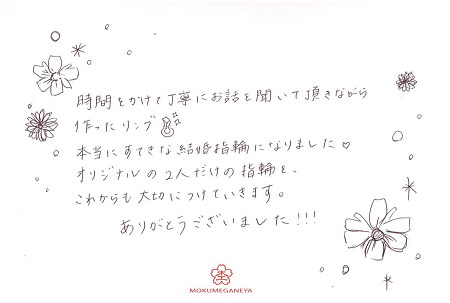 時間をかけて丁寧にお話を聞いて頂きながら
作ったリング
本当にすてきな結婚指輪になりました♡
オリジナルの2人だけの指輪を、
これからも大切につけていきます。
ありがとうございました!!!
MOKUMEGANEYA